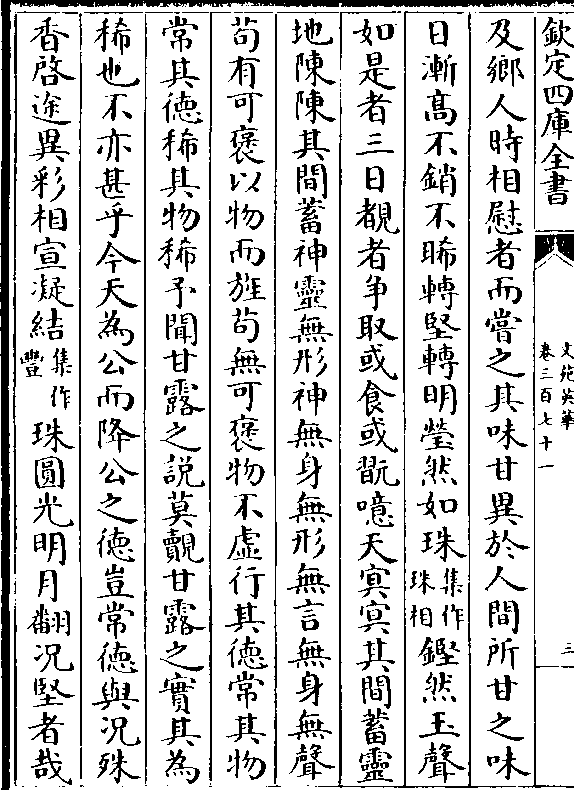 欽定四庫全書
文苑英華
卷三百七十一
三
及鄉人時相慰者而嘗之其味甘異於人間所甘之味
日漸高不銷不晞轉堅轉明瑩然如珠集作珠相鏗然玉聲
如是者三日覩者争取或食或翫噫天冥冥其間蓄靈
地陳陳其間蓄神靈無形神無身無形無言無身無聲
苟有可褒以物而旌苟無可褒物不虛行其德常其物
常其德稀其物稀予聞甘露之説莫覿甘露之實其為
稀也不亦甚乎今天為公而降公之德豈常德與况殊
香啓途異彩相宣凝結集作豐珠圓光明月翻况堅者哉